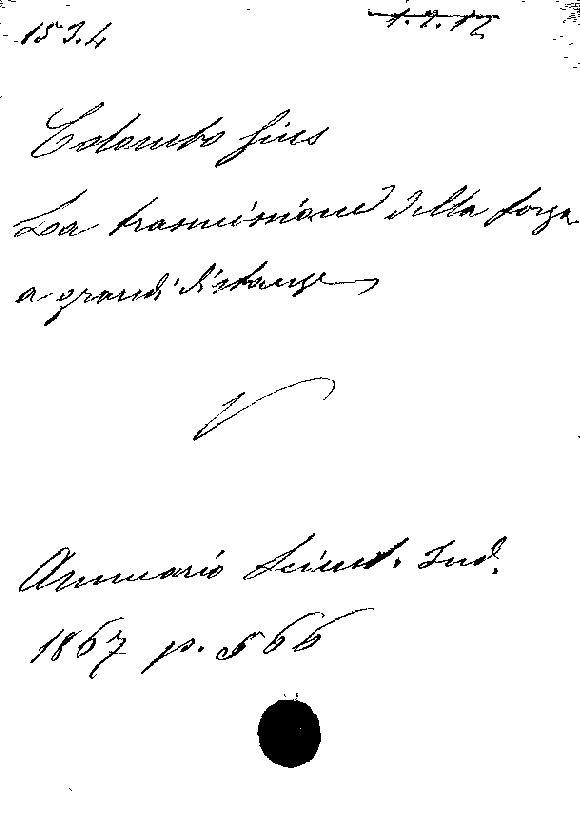 153.4
Colombo Gius
La trasmissione della forza
a grandi distanze
Annuario Scient. Ind.
1867 p. 566